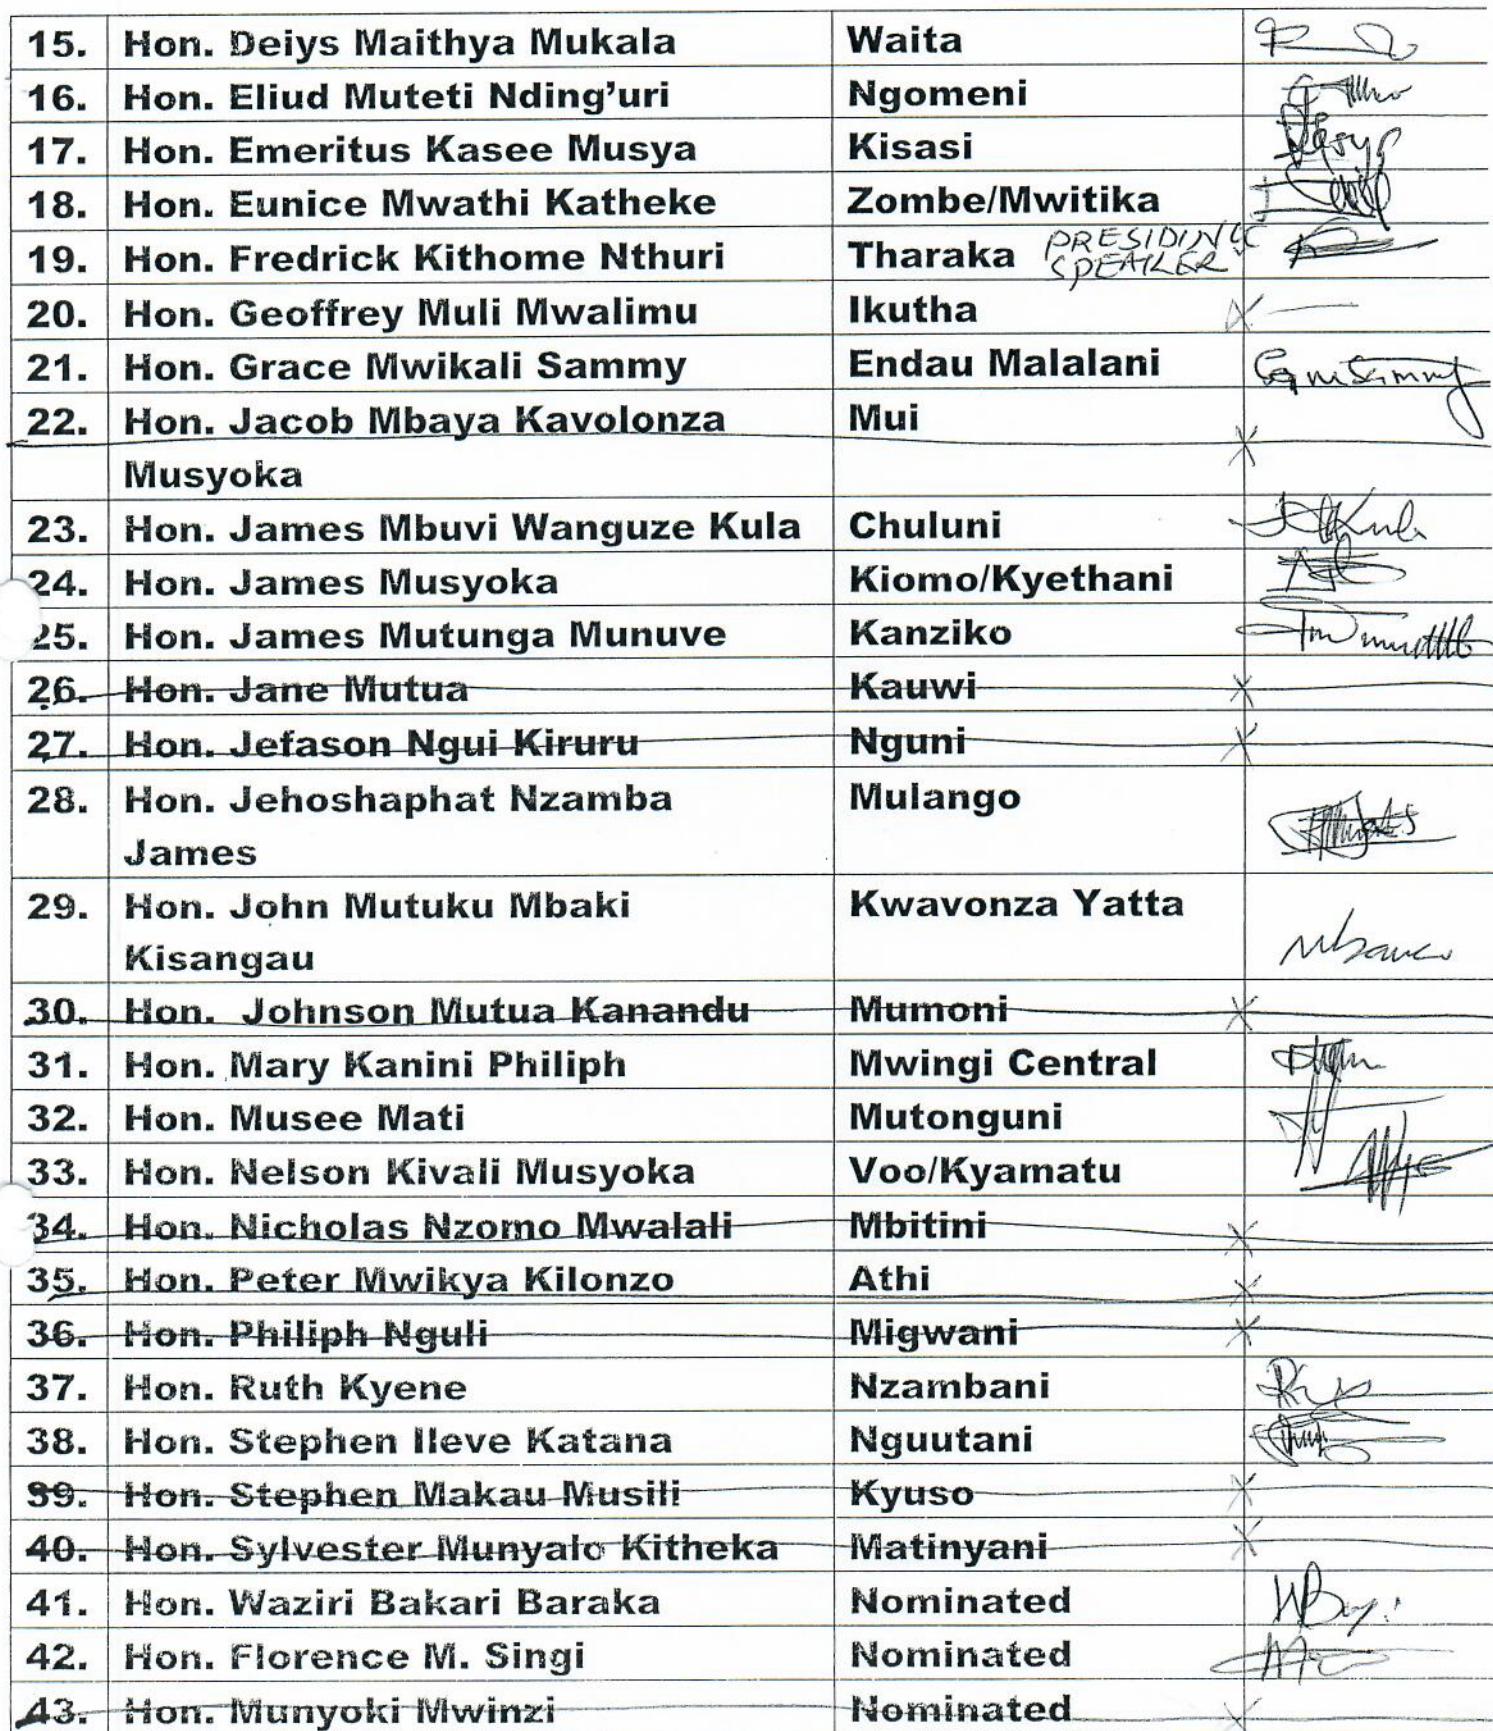 15. Hon. Deiys Maithya Mukala Waita
16. Hon. Eliud Muteti Nding’uri Ngomeni
17. Hon. Emeritus Kasee Musya Kisasi
18. Hon. Eunice Mwathi Katheke Zombe/Mwitika
19. Hon. Fredrick Kithome Nthuri Tharaka PRESIDING
SPEAKER
20. Hon. Geoffrey Muli Mwalimu Ikutha
21. Hon. Grace Mwikali Sammy Endau Malalani
22. Hon. Jacob Mbaya Kavolonza Mui
Musyoka
23. Hon. James Mbuvi Wanguze Kula Chuluni
24. Hon. James Musyoka Kiomo/Kyethani
25. Hon. James Mutunga Munuve Kanziko
26. Hon. Jane Mutua Kauwi
27. Hon. Jefason Ngui Kiruru Nguni
28. Hon. Jehoshaphat Nzamba Mulango
James
29. Hon. John Mutuku Mbaki Kwavonza Yatta
Kisangau
30. Hon. Johnson Mutua Kanandu Mumoni
31. Hon. Mary Kanini Philiph Mwingi Central
32. Hon. Musee Mati Mutonguni
33. Hon. Nelson Kivali Musyoka Voo/Kyamatu
34. Hon. Nicholas Nzomo Mwalali Mbitini
35. Hon. Peter Mwikya Kilonzo Athi
36. Hon. Philiph Nguli Migwani
37. Hon. Ruth Kyene Nzambani
38. Hon. Stephen Ileve Katana Nguutani
39. Hon. Stephen Makau Musili Kyuso
40. Hon. Sylvester Munyalo Kitheka Matinyani
41. Hon. Waziri Bakari Baraka Nominated
42. Hon. Florence M. Singi Nominated
43. Hon. Munyoki Mwinzi Nominated